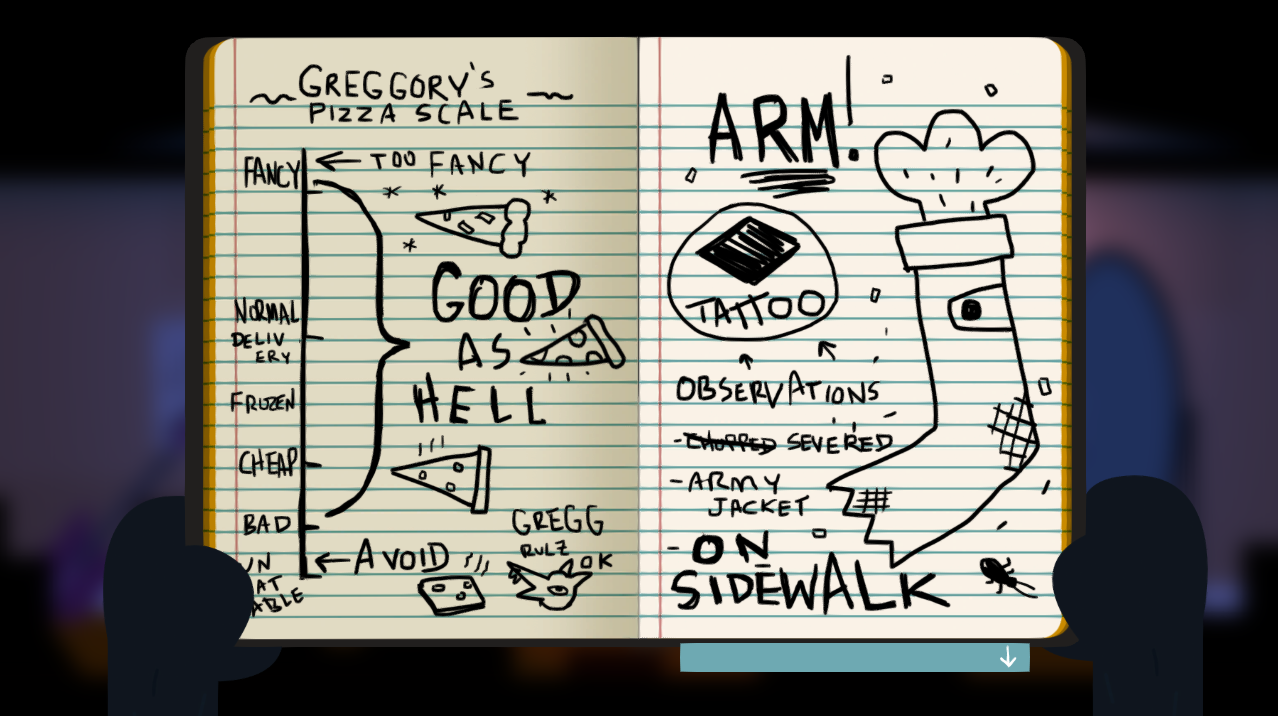 GREGGORY'S
PIZZA SCALE
FANCY
← TOO FANCY
GOOD
AS
HELL
NORMAL
DELIV
ERY
FROZEN
CHEAP
BAD
UN
EAT
ABLE
← AVOID
GREGG
RULZ
OK
ARM!
TATTOO
OBSERVATIONS
- CHOPPED SEVERED
- ARMY
JACKET
- ON
SIDEWALK